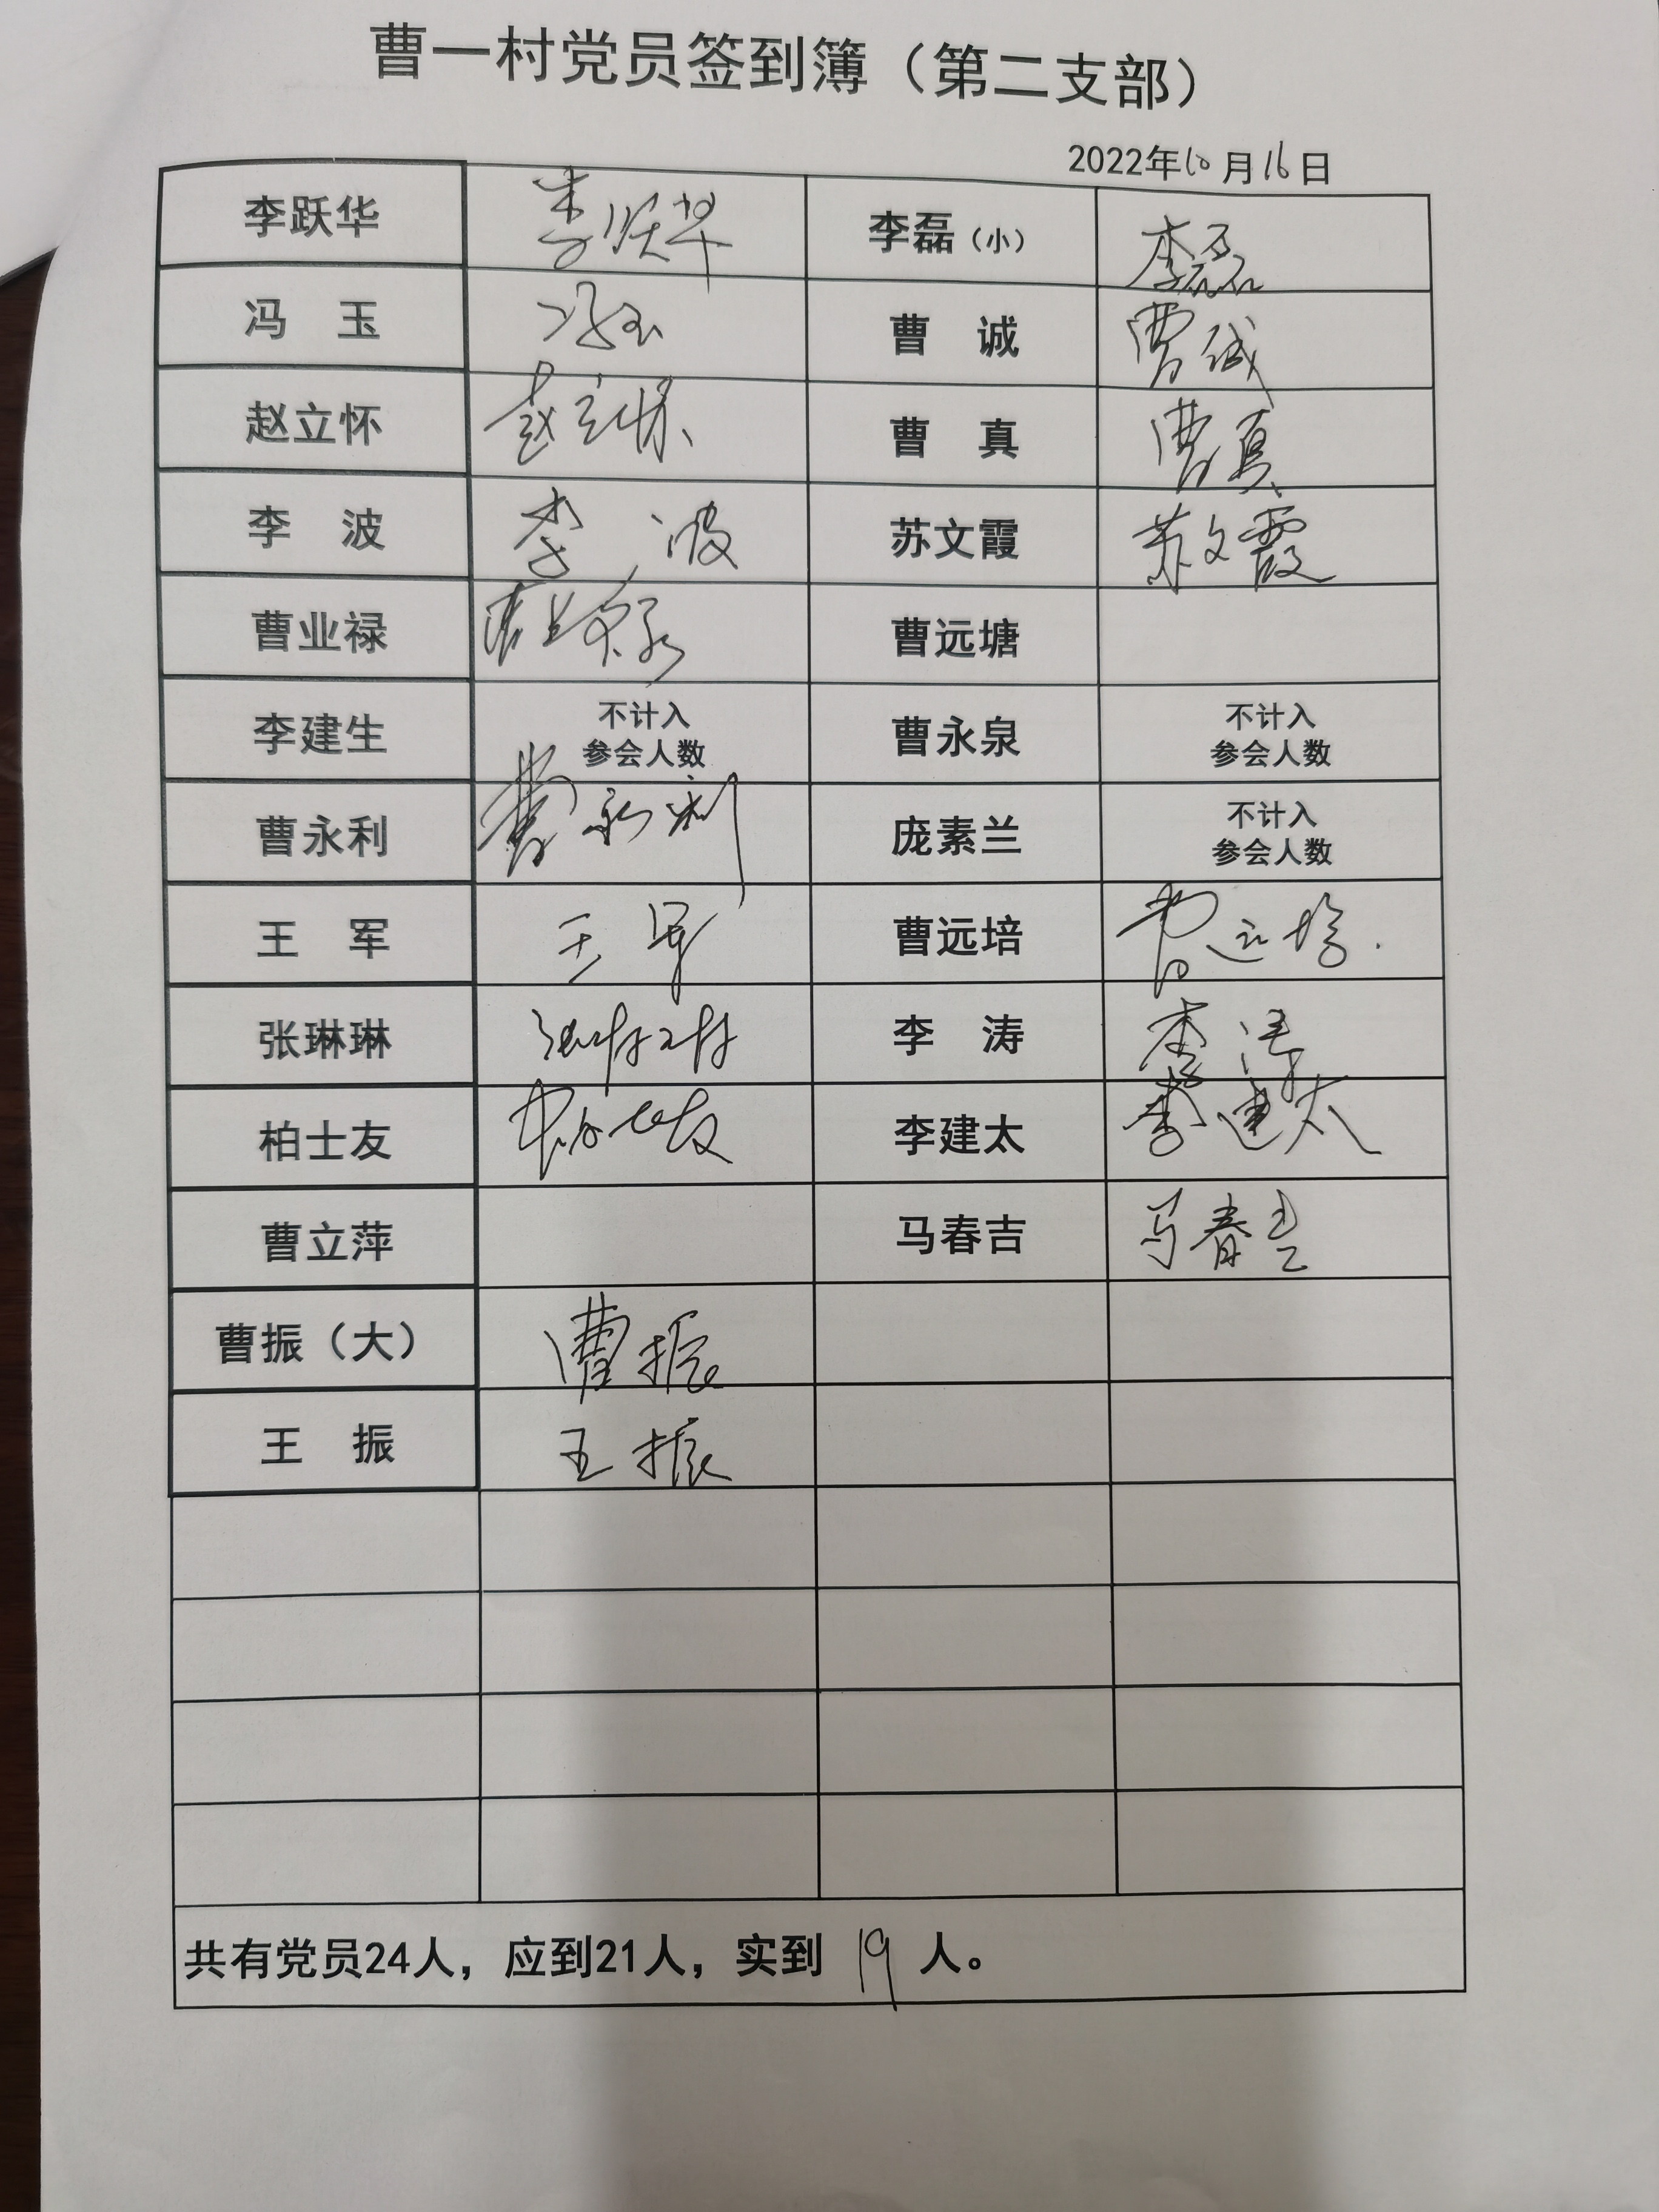 曹一村党员签到簿（第二支部）
2022年10月16日
李跃华 李跃华 李磊（小） 李磊
冯 玉 冯玉 曹 诚 曹诚
赵立怀 赵立怀 曹 真 曹真
李 波 李波 苏文霞 苏文霞
曹业禄 曹业禄 曹远塘
李建生 不计入 曹永泉 不计入
参会人数 参会人数
曹永利 曹永利 庞素兰 不计入
参会人数
王 军 王军 曹远培 曹远培
张琳琳 张琳琳 李 涛 李涛
柏士友 柏士友 李建太 李建太
曹立萍 马春吉 马春吉
曹振（大） 曹振
王 振 王振
共有党员24人，应到21人，实到 19 人。